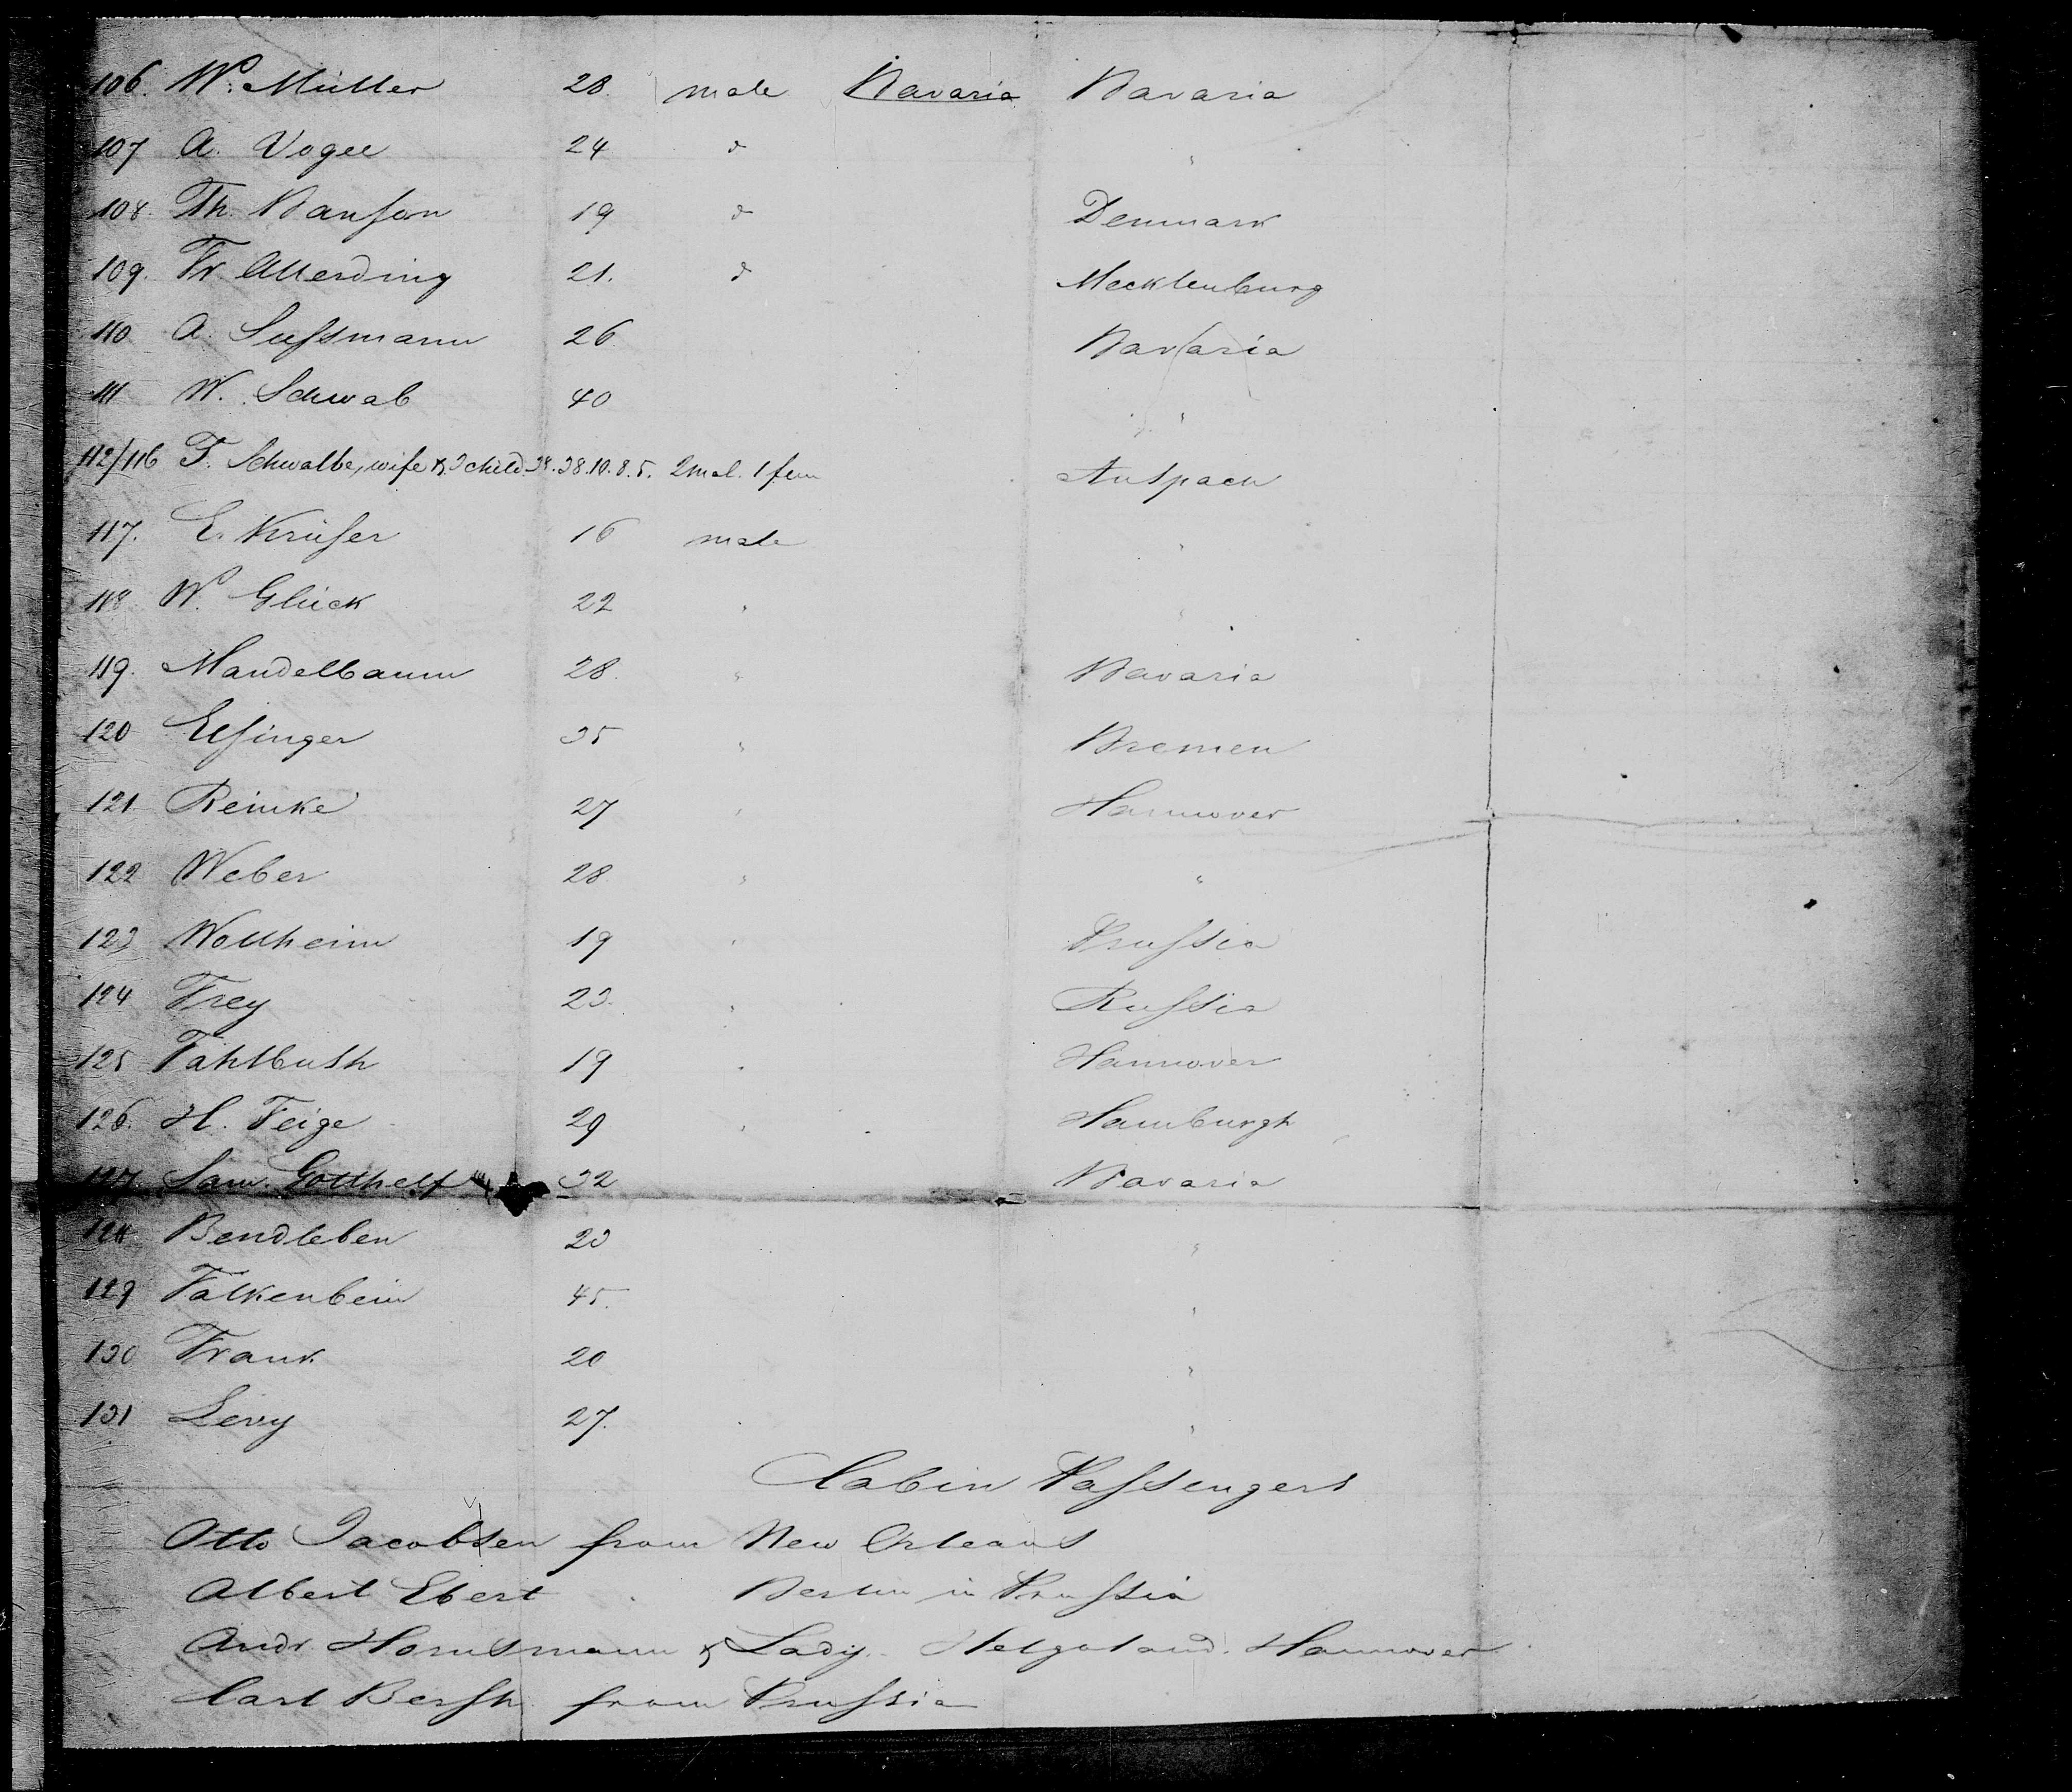 106. W. Müller 28. male Bavaria Bavaria
107 A. Vogel 24 d "
108. Th. Hanson 19 d Denmark
109. Fr. Allerding 21. d Mecklenburg
110 A. Sussmann 26. Bavaria
111 W. Schwab 40 "
112/116 F. Schwalbe, wife & 3 child 38. 38. 10. 8. 5. 2 mal. 1 fem Anspach
117. E. Krüser 16 male "
118 W. Glück 22 " "
119. Mandelbaum 28. " Bavaria
120 Elsinger 35 " Bremen
121 Reinke 27 " Hannover
122 Weber 28 " "
123 Wollheim 19 " Prussia
124 Frey 23. " Russia
125 Fahlbush 19 " Hannover
126. H. Feige 29 " Hamburgh
127. Sam. Gotthelf 32 Bavaria
128 Bendleben 23 "
129 Falkenbein 45. "
130 Frank 20 "
131 Levy 27. "
Cabin Passengers
Otto Jacobsen from New Orleans
Albert Ebert " Berlin in Prussia
Andr. Hornsmann & Lady. Helgoland. Hannover
Carl Bersh from Prussia